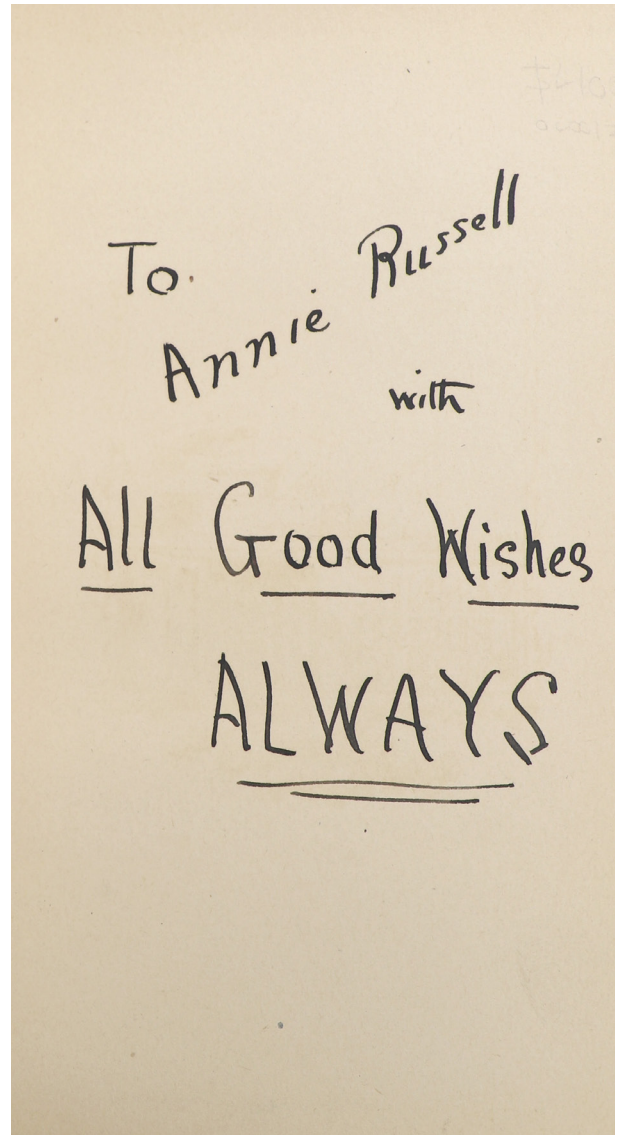 To
Annie Russell
with
All Good Wishes
ALWAYS